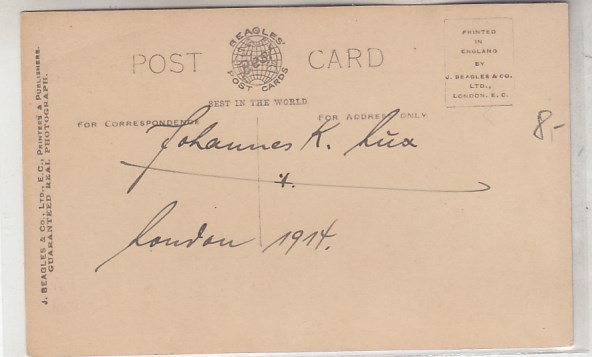 POST CARD
BEAGLES'
POST CARDS
BEST IN THE WORLD
PRINTED
IN
ENGLAND
BY
J. BEAGLES & CO.
LTD.,
LONDON. E.C.
FOR CORRESPONDENCE
FOR ADDRESS ONLY
8,-
Johannes K.
London 1914.
J. BEAGLES & CO., LTD., E.C., PRINTERS & PUBLISHERS.
GUARANTEED REAL PHOTOGRAPH.